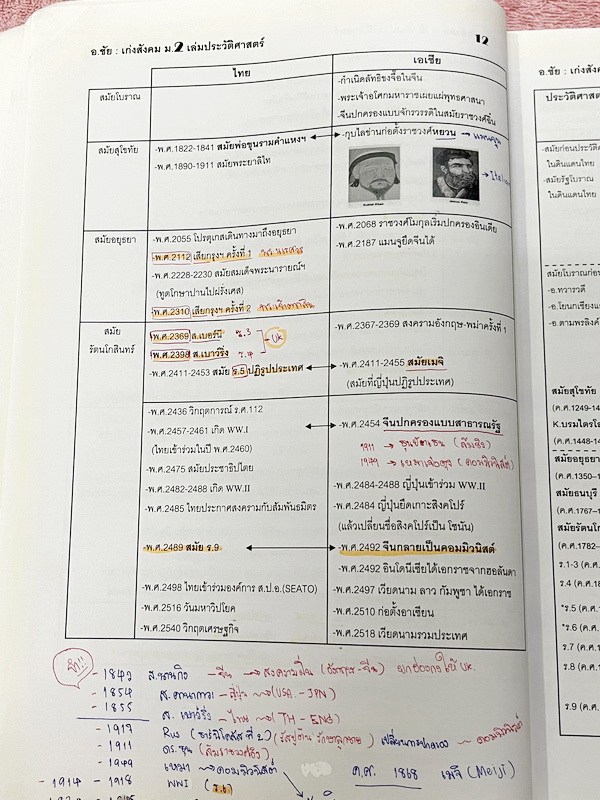 อ.ชัย : เก่งสังคม ม.2 เล่มประวัติศาสตร์
12
ไทย
เอเชีย
สมัยโบราณ
-กำเนิดลัทธิขงจื้อในจีน
-พระเจ้าอโศกมหาราชเผยแผ่พุทธศาสนา
-จีนปกครองแบบจักรวรรดิในสมัยราชวงศ์ฉิน
สมัยสุโขทัย
-พ.ศ.1822-1841 สมัยพ่อขุนรามคำแหงฯ
-พ.ศ.1890-1911 สมัยพระยาลิไท
-กุบไลข่านก่อตั้งราชวงศ์หยวน
Kublai Khan
Marco Polo
สมัยอยุธยา
-พ.ศ.2055 โปรตุเกสเดินทางมาถึงอยุธยา
-พ.ศ.2112 เสียกรุงฯ ครั้งที่ 1
-พ.ศ.2228-2230 สมัยสมเด็จพระนารายณ์ฯ
(ทูตโกษาปานไปฝรั่งเศส)
-พ.ศ.2310 เสียกรุงฯ ครั้งที่ 2
-พ.ศ.2068 ราชวงศ์โมกุลเริ่มปกครองอินเดีย
-พ.ศ.2187 แมนจูยึดจีนได้
สมัย
รัตนโกสินทร์
-พ.ศ.2369 ส.เบอร์นี ร.3
-พ.ศ.2398 ส.เบาว์ริ่ง ร.4
UK
-พ.ศ.2411-2453 สมัย ร.5 ปฏิรูปประเทศ
-พ.ศ.2367-2369 สงครามอังกฤษ-พม่าครั้งที่ 1
-พ.ศ.2411-2455 สมัยเมจิ
(สมัยที่ญี่ปุ่นปฏิรูปประเทศ)
-พ.ศ.2436 วิกฤตการณ์ ร.ศ.112
-พ.ศ.2457-2461 เกิด WW.I
(ไทยเข้าร่วมในปี พ.ศ.2460)
-พ.ศ.2475 สมัยประชาธิปไตย
-พ.ศ.2482-2488 เกิด WW.II
-พ.ศ.2485 ไทยประกาศสงครามกับสัมพันธมิตร
-พ.ศ.2489 สมัย ร.9
-พ.ศ.2498 ไทยเข้าร่วมองค์การ ส.ป.อ.(SEATO)
-พ.ศ.2516 วันมหาวิปโยค
-พ.ศ.2540 วิกฤตเศรษฐกิจ
-พ.ศ.2454 จีนปกครองแบบสาธารณรัฐ
1911 → ซุนยัตเซน
1949 → เหมาเจ๋อตุง (คอมมิวนิสต์)
-พ.ศ.2484-2488 ญี่ปุ่นเข้าร่วม WW.II
-พ.ศ.2484 ญี่ปุ่นยึดเกาะสิงคโปร์
(แล้วเปลี่ยนชื่อสิงคโปร์เป็น โชนัน)
-พ.ศ.2492 จีนกลายเป็นคอมมิวนิสต์
-พ.ศ.2492 อินโดนีเซียได้เอกราชจากฮอลันดา
-พ.ศ.2497 เวียดนาม ลาว กัมพูชา ได้เอกราช
-พ.ศ.2510 ก่อตั้งอาเซียน
-พ.ศ.2518 เวียดนามรวมประเทศ
- 1842 ส.นานกิง - จีน → สงครามฝิ่น (อังกฤษ-จีน) ยกฮ่องกงให้ UK.
- 1854 ส.คานากาวา - ญี่ปุ่น → (USA.-JPN)
- 1855 ส.เบาว์ริ่ง - ไทย → (TH-ENG)
- 1917
- 1911 ดร.ซุน
- 1949 เหมา → คอมมิวนิสต์
- 1914 - 1918 WWI (ร.6)
ค.ศ. 1868 เมจิ (Meiji)
อ.ชัย : เก่งสังค
ประวัติศาส
-สมัยก่อนประวัติ
ในดินแดนไทย
-สมัยรัฐโบราณ
ในดินแดนไทย
-อ.ทวารวดี
-อ.โยนกเชียง
-อ.ตามพรลิงค์
สมัยสุโขทัย
(ค.ศ.1249-14
(ค.ศ.1448-14
สมัยอยุธยา
(ค.ศ.1350-1
สมัยธนบุรี
(ค.ศ.1767-1
สมัยรัตนโก
(ค.ศ.1782-
ร.1-3 (ค.ศ.
ร.4 (ค.ศ.18
*ร.5 (ค.ศ.1
*ร.6 (ค.ศ.1
ร.7 (ค.ศ.1
ร.8 (ค.ศ.1
ร.9 (ค.ศ.